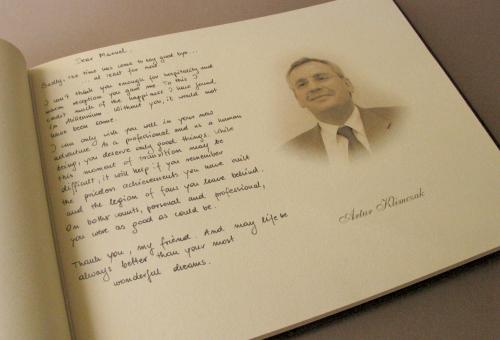 Dear Manuel,
Sadly, the time has come to say good bye...
at least for now.
I can't thank you enough for hospitality and
warm reception you gave me. To this I
credit much of the happiness I have found
in Millennium. Without you, it would not
have been same.
I can only wish you well in your new
adventure. As a professional and as a human
being, you deserve only good things. While
this moment of transition may be
difficult, it will help if you remember
the priceless achievements you have built
and the legion of fans you leave behind.
On boths counts, personal and professional,
you were as good as could be.
Thank you, my friend. And may life be
always better than your most
wonderful dreams.
Artur Klimczak